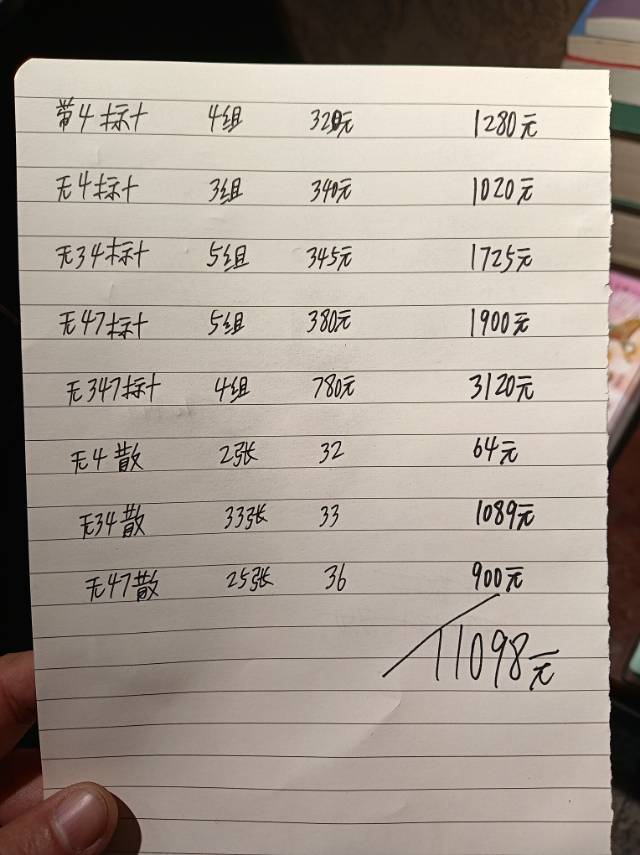 带4标十 4组 320元 1280元
无4标十 3组 340元 1020元
无34标十 5组 345元 1725元
无47标十 5组 380元 1900元
无347标十 4组 780元 3120元
无4散 2张 32 64元
无34散 33张 33 1089元
无47散 25张 36 900元
11098元